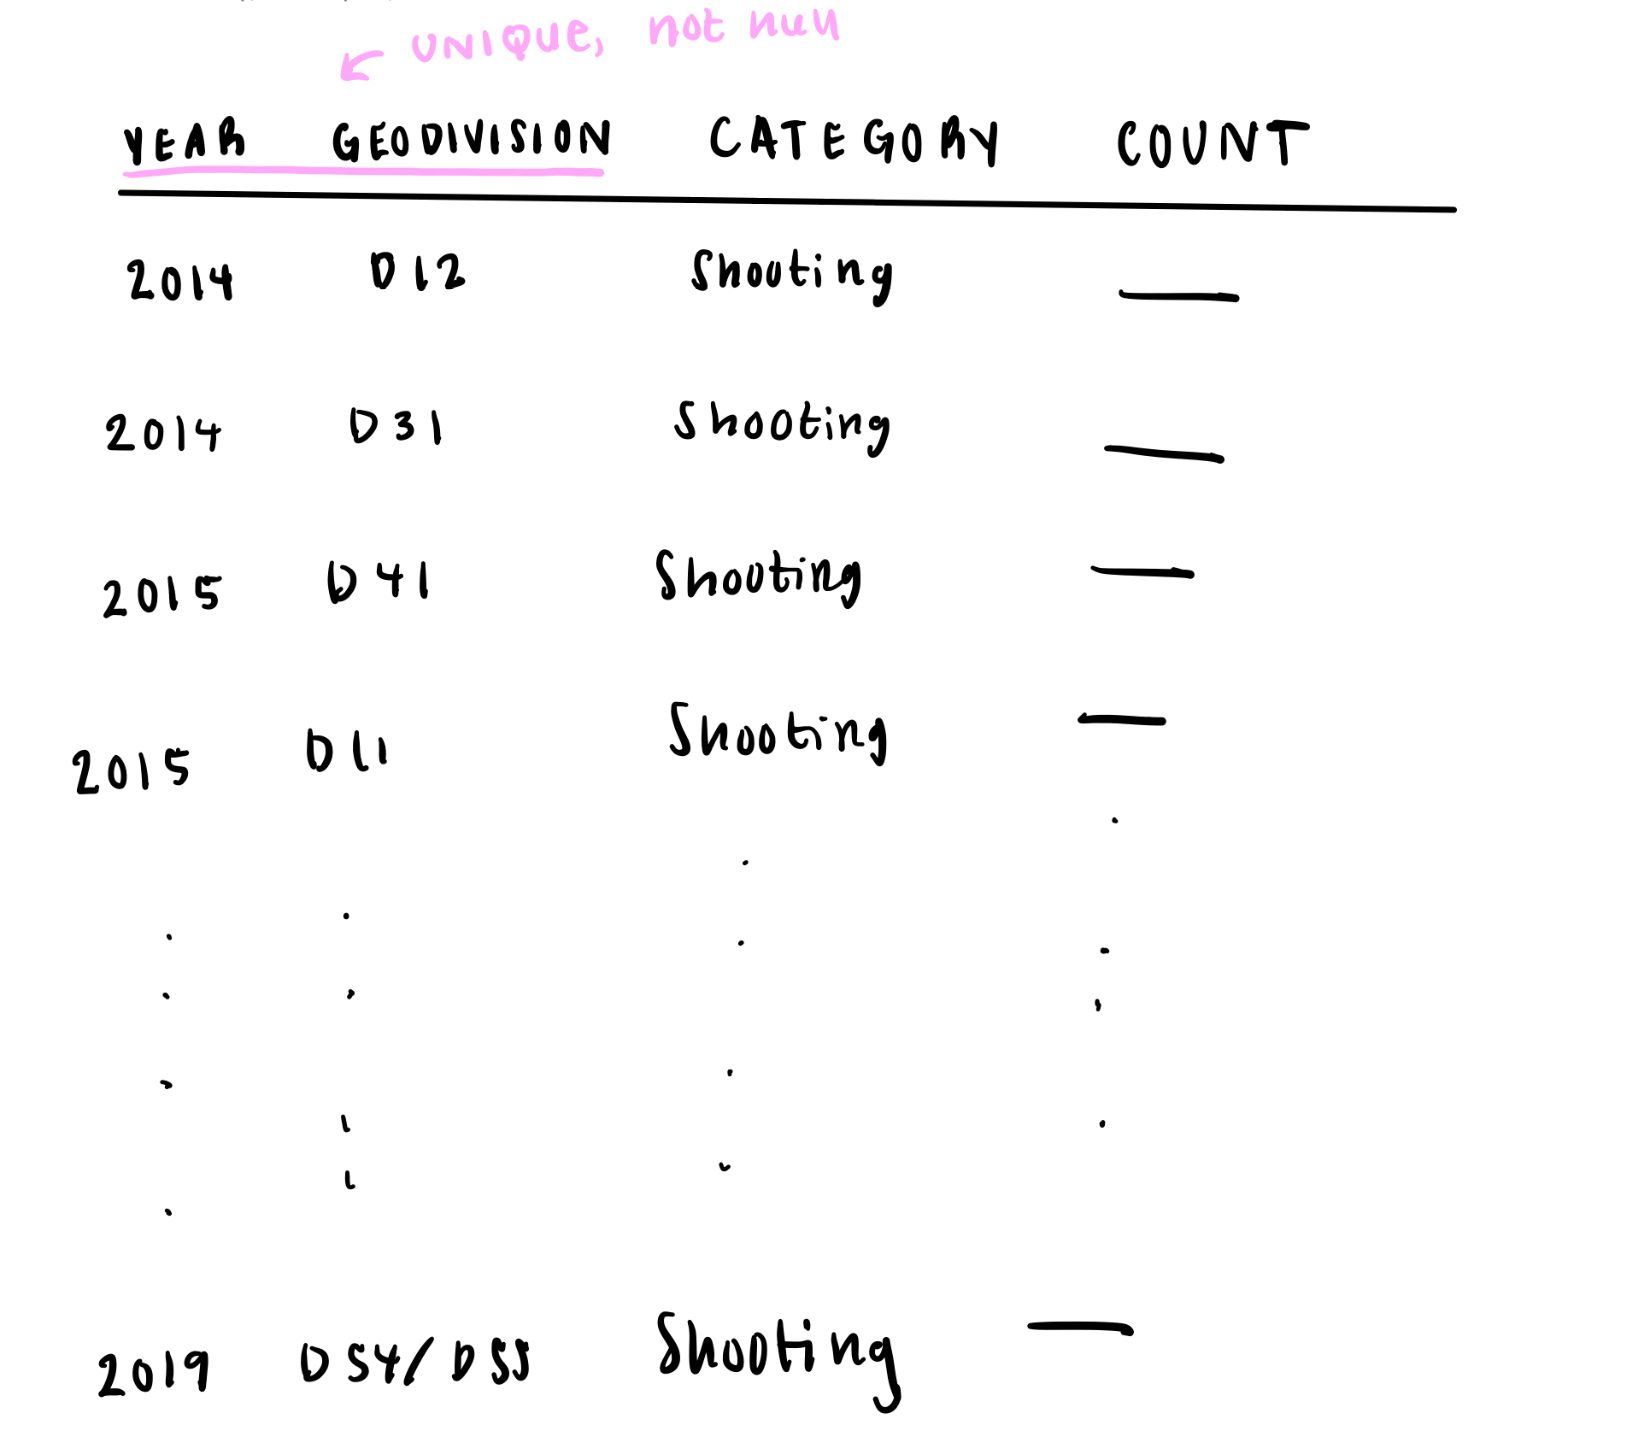 UNIQUE, not null
YEAR GEODIVISION CATEGORY COUNT
2014 D12 Shooting
2014 D31 Shooting
2015 D41 Shooting
2015 D11 Shooting
2019 D54/D55 Shooting